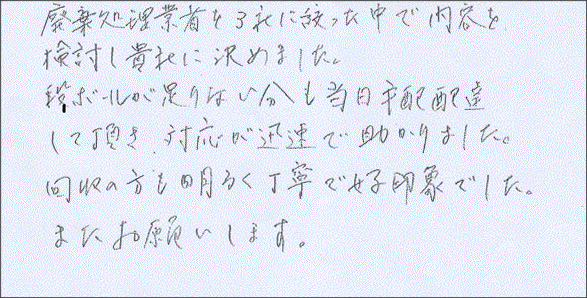 廃棄処理業者を3社に絞った中で内容を
検討し貴社に決めました。
段ボールが足りない分も当日宅配配達
して頂き、対応が迅速で助かりました。
回収の方も明るく丁寧で好印象でした。
またお願いします。